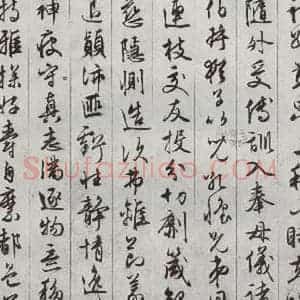 卑上和下
隨外受傅訓入奉母儀諸
伯叔猶子比兒孔懷兄弟同
連枝交友投分切劘箴
慈隱惻造次弗離節義
退顛沛匪虧性靜情逸
神疲守真志滿逐物意移
持雅操好爵自縻都邑
Shufaziliao.com